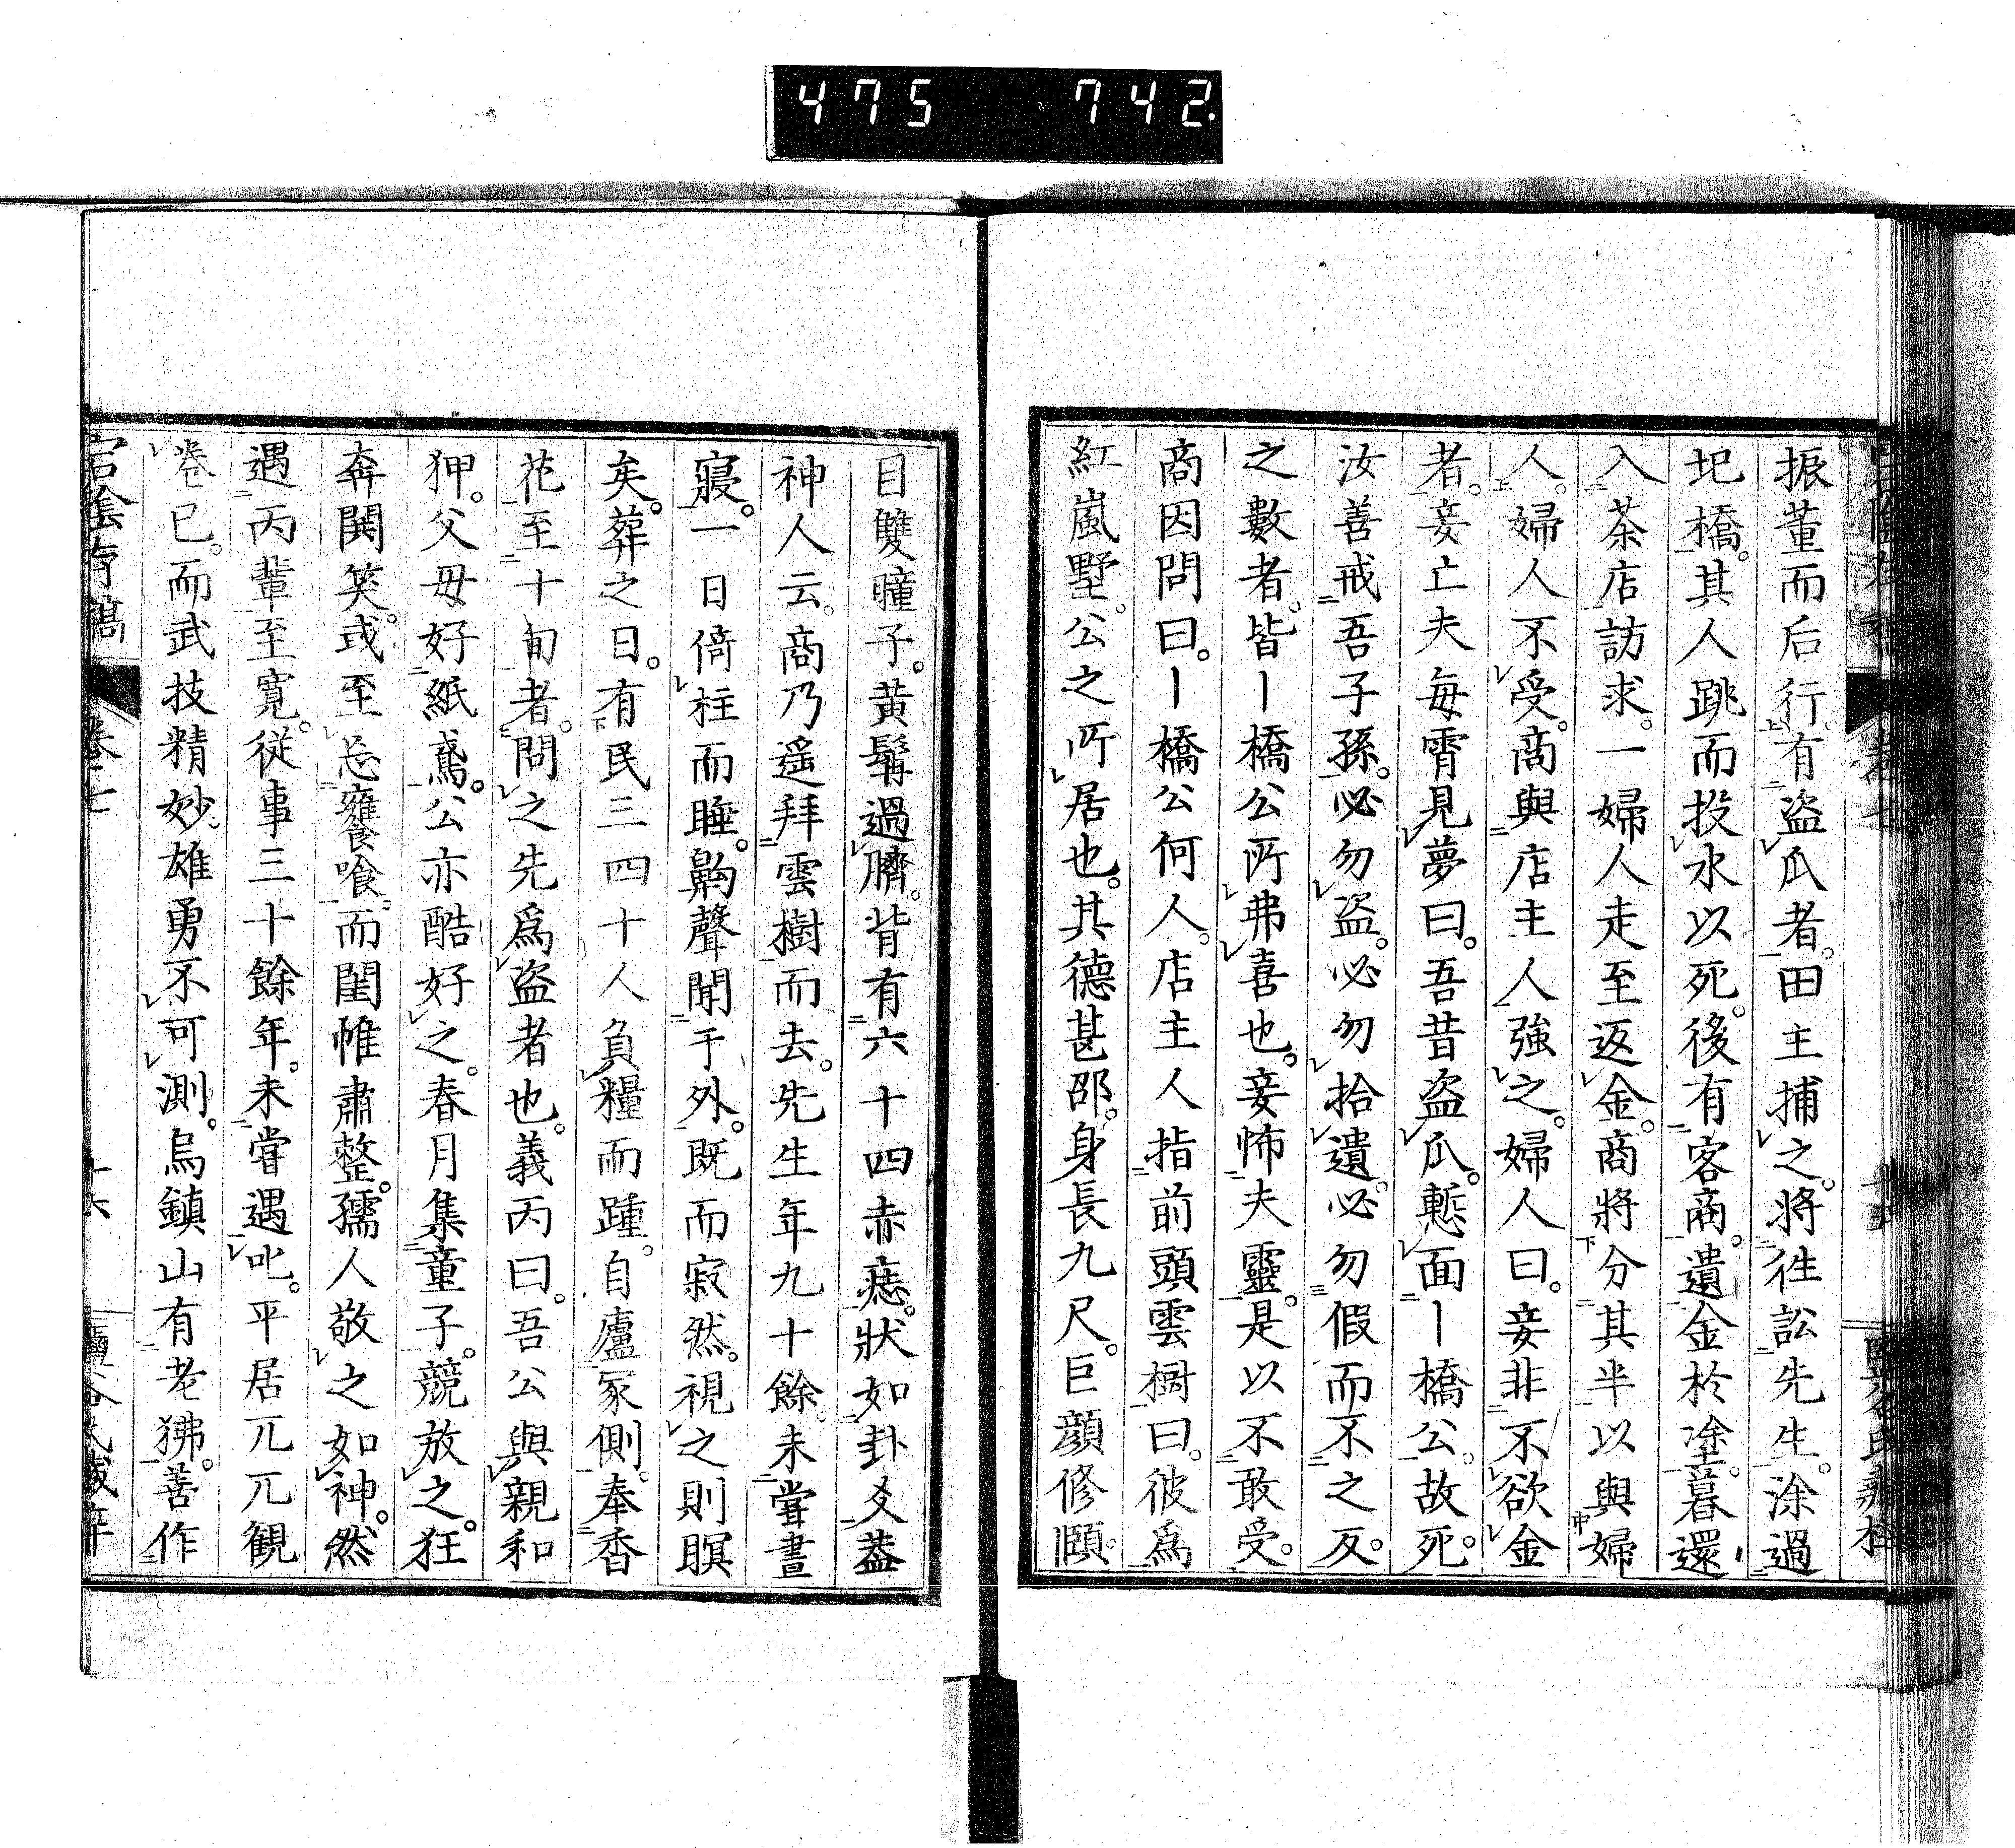 475 742.
振董而后行。有盗瓜者。田主捕之。將往訟先生。涂過
圯橋。其人跳而投水以死。後有客商。遺金於塗。暮還
入茶店訪求。一婦人走至返金。商將分其半以與婦
人。婦人不受。商與店主人強之。婦人曰。妾非不欲金
者。妾亡夫每霄見夢曰。吾昔盗瓜。慙面丨橋公。故死。
汝善戒吾子孫。必勿盗。必勿拾遺。必勿假而不之反。
之數者。皆丨橋公所弗喜也。妾怖夫靈。是以不敢受。
商因問曰。丨橋公何人。店主人指前頭雲樹曰。彼爲
紅嵐墅。公之所居也。其德甚邵。身長九尺。巨顔修頤。
目雙瞳子。黃鬚過臍。背有六十四赤痣。狀如卦爻。蓋
神人云。商乃遥拜雲樹而去。先生年九十餘。未嘗晝
寢。一日倚柱而睡。鼾聲聞于外。既而寂然。視之則瞑
矣。葬之日。有民三四十人負糧而踵。自廬冢側。奉香
花至十旬者。問之先爲盗者也。義丙曰。吾公與親和
狎。父母好紙鳶。公亦酷好之。春月集童子。競放之。狂
奔鬨笑。或至忘饔飧。而閨帷肅整。孺人敬之如神。然
遇丙輩至寛。従事三十餘年。未嘗遇叱。平居兀兀觀
卷已。而武技精妙。雄勇不可測。烏鎮山有老狒。善作
卷七
十六